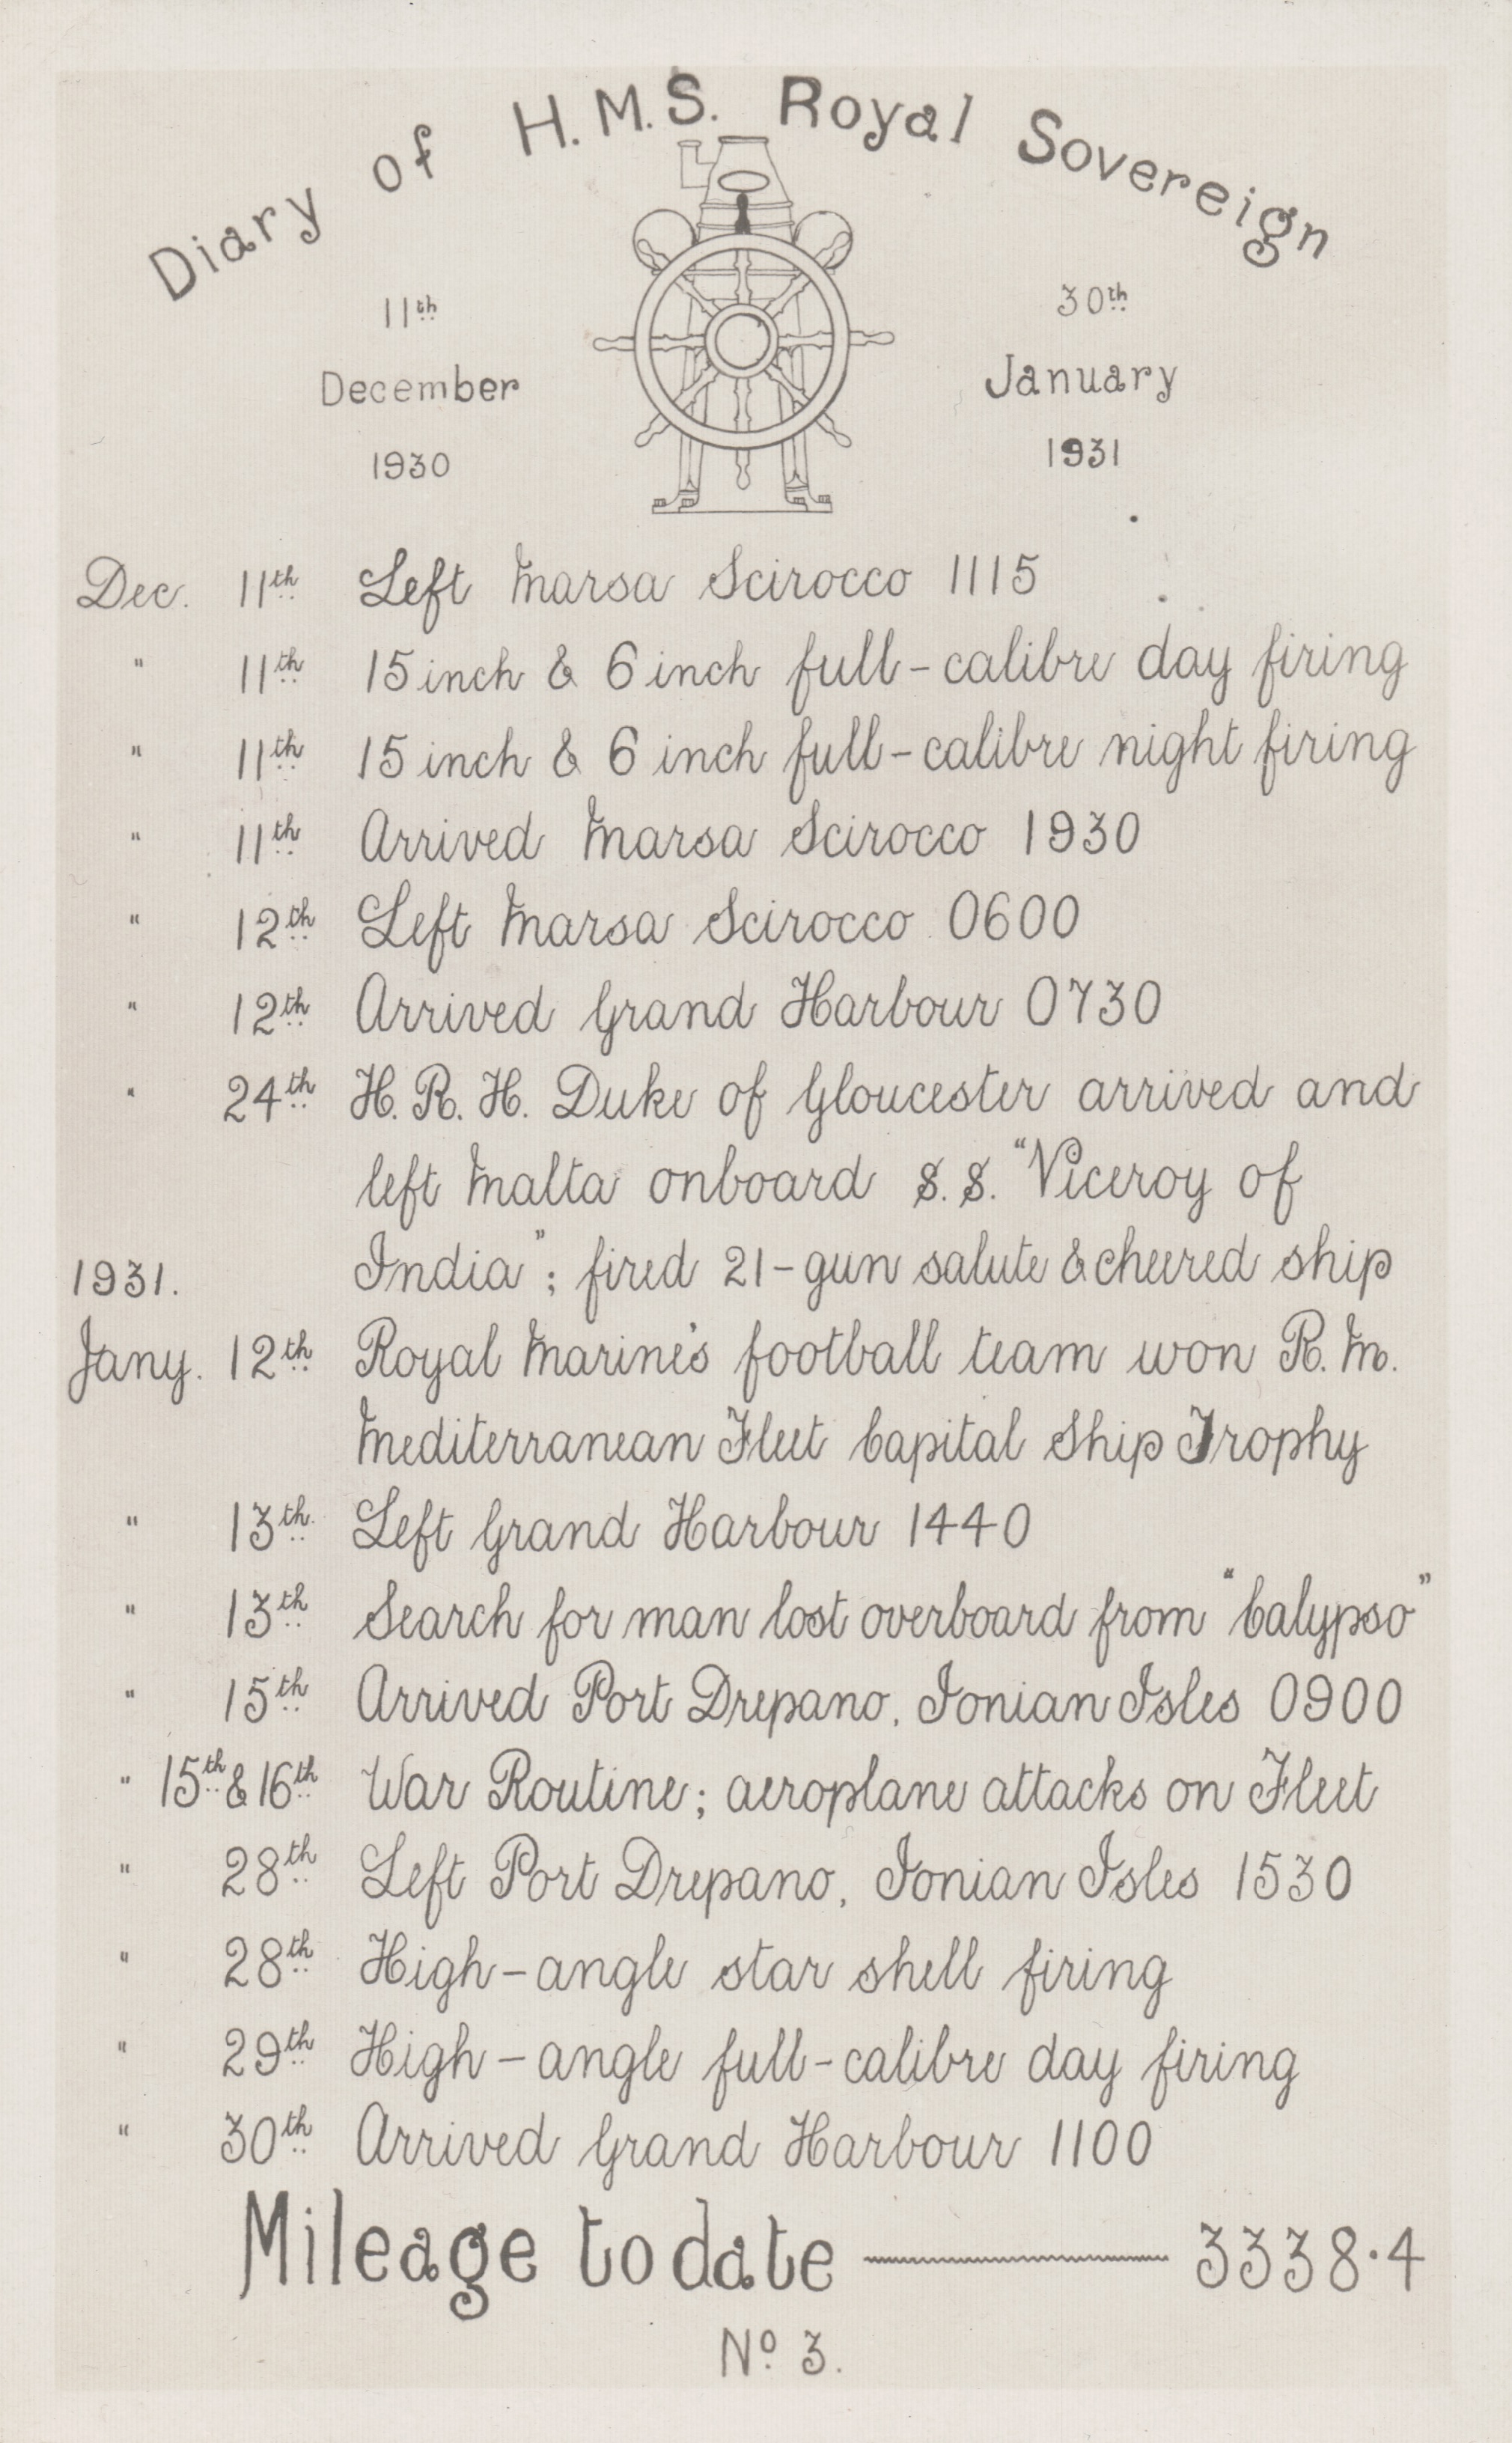 Diary of H.M.S. Royal Sovereign
11th December 1930
30th January 1931
Dec. 11th Left Marsa Scirocco 1115
" 11th 15 inch & 6 inch full-calibre day firing
" 11th 15 inch & 6 inch full-calibre night firing
" 11th Arrived Marsa Scirocco 1930
" 12th Left Marsa Scirocco 0600
" 12th Arrived Grand Harbour 0730
" 24th H. R. H. Duke of Gloucester arrived and
left Malta onboard S. S. "Viceroy of
India"; fired 21-gun salute & cheered ship
1931.
Jany. 12th Royal Marine's football team won R. M.
Mediterranean Fleet Capital Ship Trophy
" 13th Left Grand Harbour 1440
" 13th Search for man lost overboard from "Calypso"
" 15th Arrived Port Drepano, Ionian Isles 0900
" 15th & 16th War Routine; aeroplane attacks on Fleet
" 28th Left Port Drepano, Ionian Isles 1530
" 28th High-angle star shell firing
" 29th High-angle full-calibre day firing
" 30th Arrived Grand Harbour 1100
Mileage to date 3338·4
No. 3.